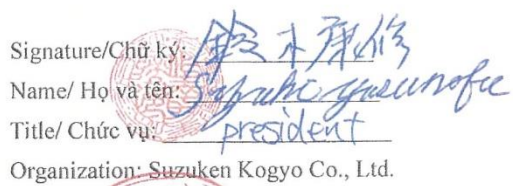 Signature/Chữ ký: 鈴木康修
Name/ Họ và tên: Suzuki yasunofu
Title/ Chức vụ: president
Organization: Suzuken Kogyo Co., Ltd.